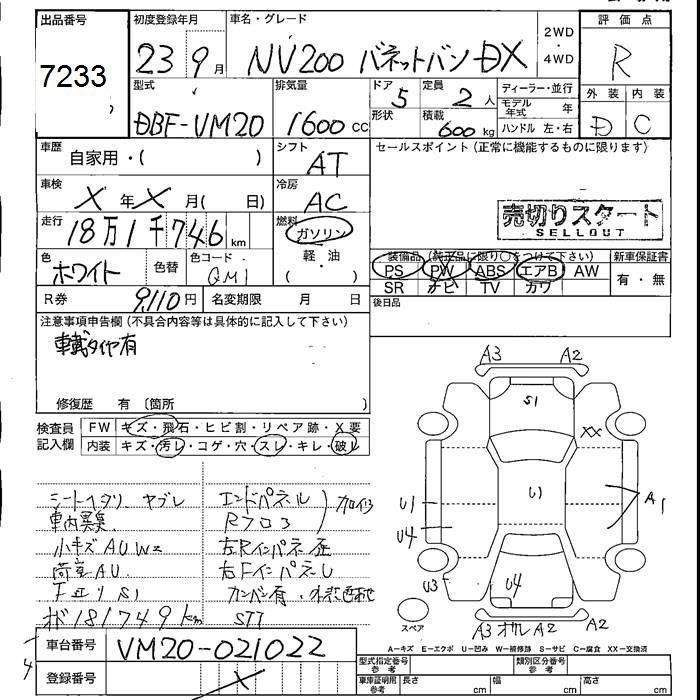 出品番号 初度登録年月 車名・グレード 2WD・4WD 評価点
7233 23 9月 NV200 バネットバン DX R
型式 排気量 ドア 定員 ディーラー・並行 外装 内装
DBF-VM20 1600cc 5 2人 モデル年式 年 D C
形状 積載 600kg ハンドル 左・右
車歴 自家用・( ) シフト AT セールスポイント (正常に機能するものに限ります)
車検 X年X月( 日) 冷房 AC
売切りスタート
SELLOUT
走行 18万1千746km 燃料 ガソリン 軽・油 ( )
色 ホワイト 色替 色コード QM1
装備品 (純正品に限り〇をつけて下さい) 新車保証書
PS PW ABS エアB AW 有・無
SR ナビ TV カワ
R券 9,110円 名変期限 月 日 後日品
注意事項申告欄 (不具合内容等は具体的に記入して下さい)
車載タイヤ有
修復歴 有 〔箇所 )
検査員記入欄 FW キズ・飛石・ヒビ割・リペア跡・X要
内装 キズ・汚レ・コゲ・穴・スレ・キレ・破レ
シートヘタリ ヤブレ エンドパネル
車内異臭 Rフロア
小キズAUW2
荷室AU
S1
ホ"181749km STT
A3 A2
S1
XX
U1 U1 A1
U4
U3 U4
スペア A3 オルA2 A2
A—キズ E—エクボ U—凹み W—補修跡 S—サビ C—腐食 XX—交換済
車台番号 VM20-021022
登録番号 X
型式指定番号 参考 類別区分番号 参考
車庫証明用 参考 長さ cm 幅 cm 高さ cm